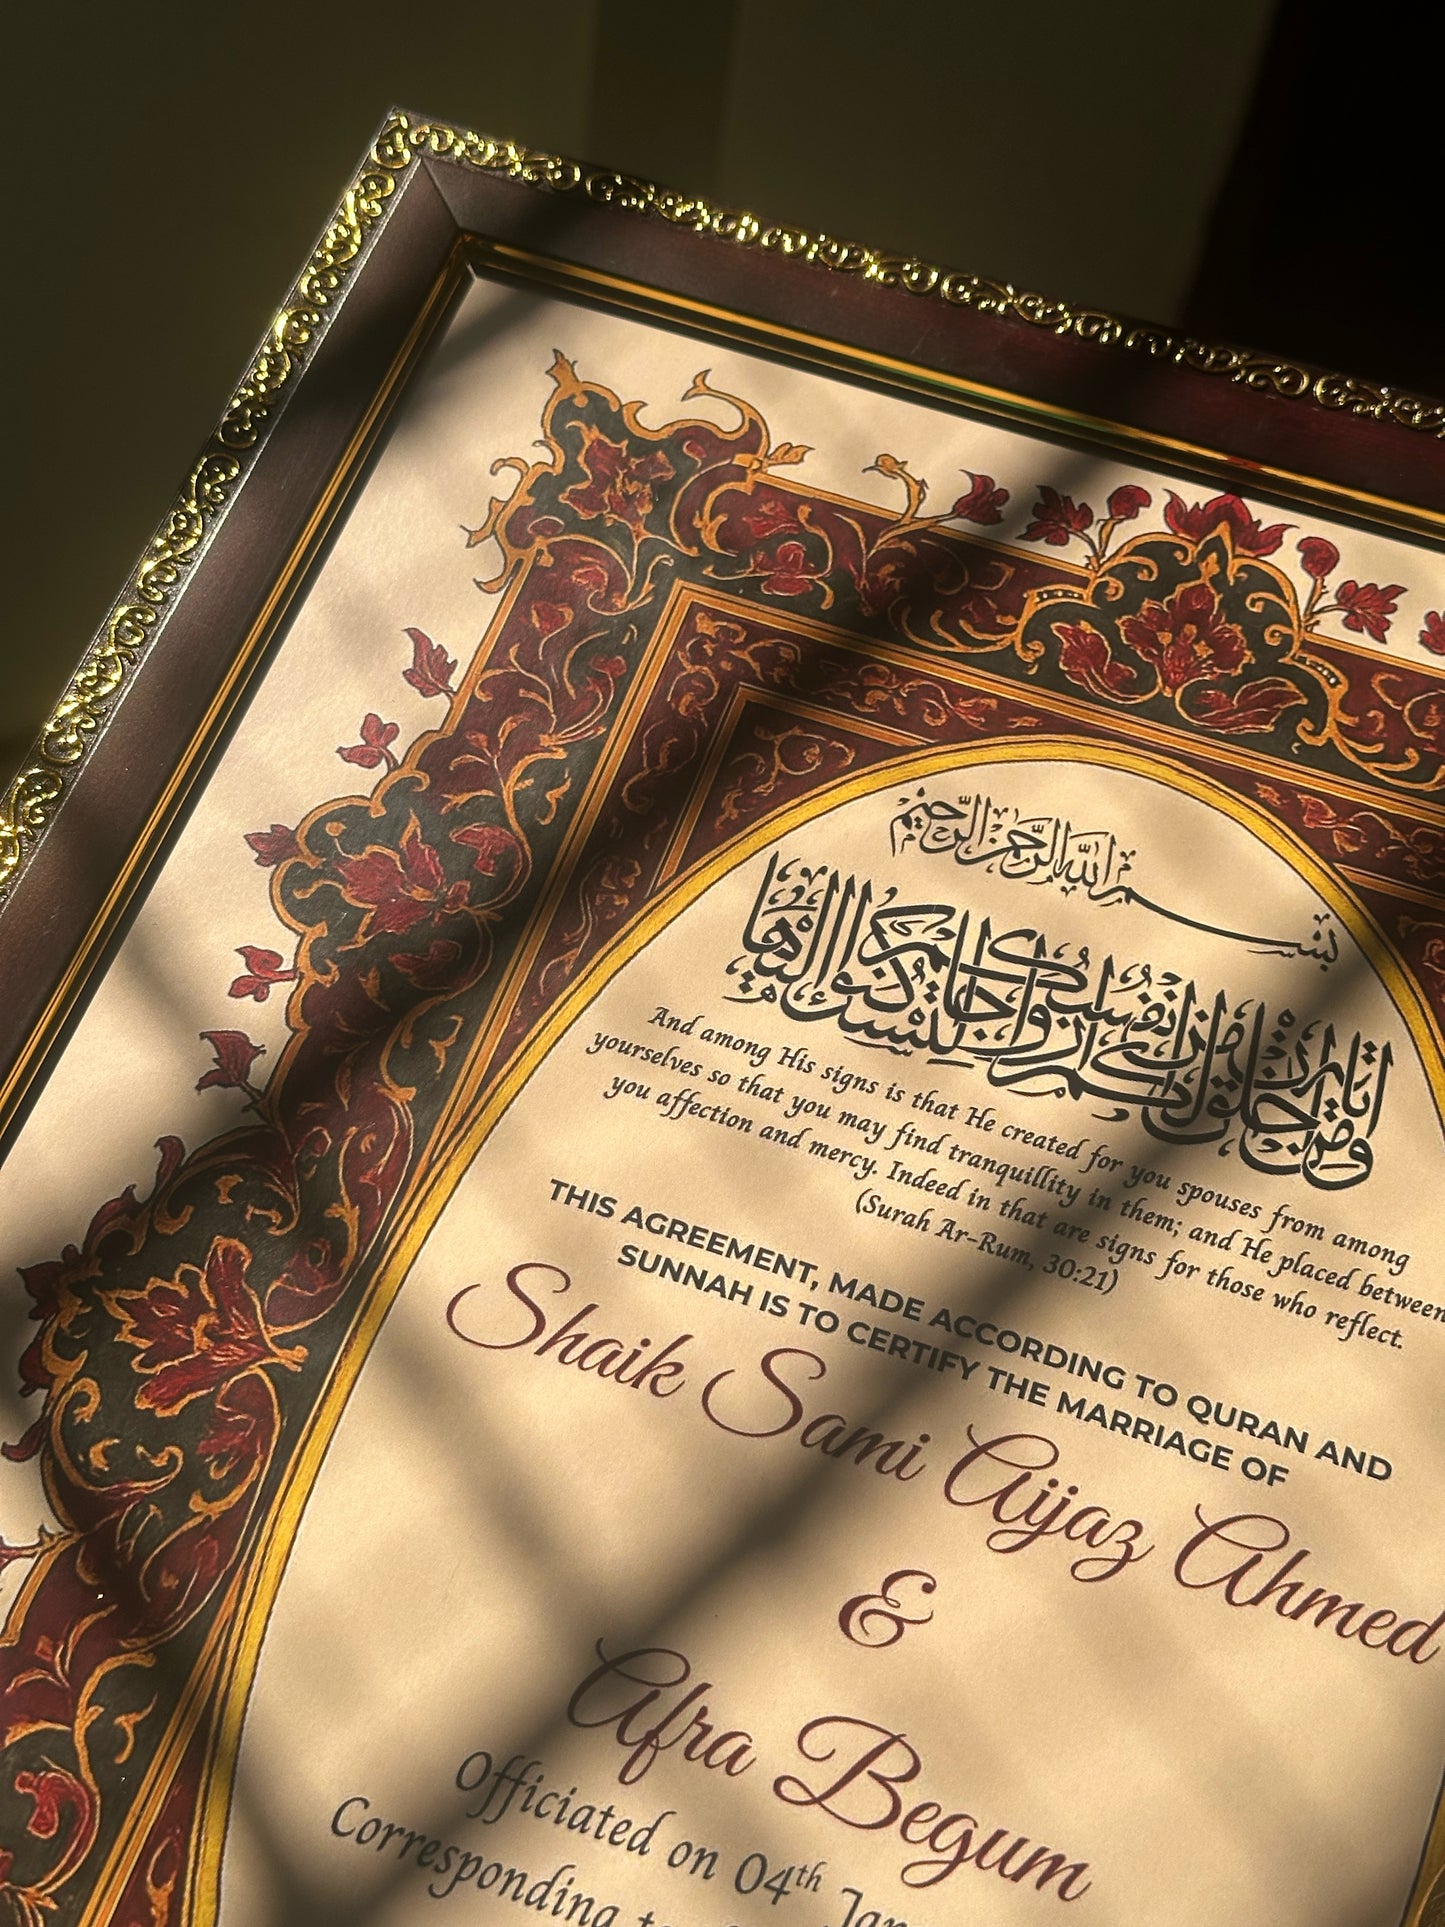 بسم الله الرحمن الرحيم
ومن آياته أن خلق لكم من أنفسكم أزواجا لتسكنوا إليها
And among His signs is that He created for you spouses from among
yourselves so that you may find tranquillity in them; and He placed between
you affection and mercy. Indeed in that are signs for those who reflect.
(Surah Ar-Rum, 30:21)
THIS AGREEMENT, MADE ACCORDING TO QURAN AND
SUNNAH IS TO CERTIFY THE MARRIAGE OF
Shaik Sami Aijaz Ahmed
&
Afra Begum
Officiated on 04th Jan
Corresponding to